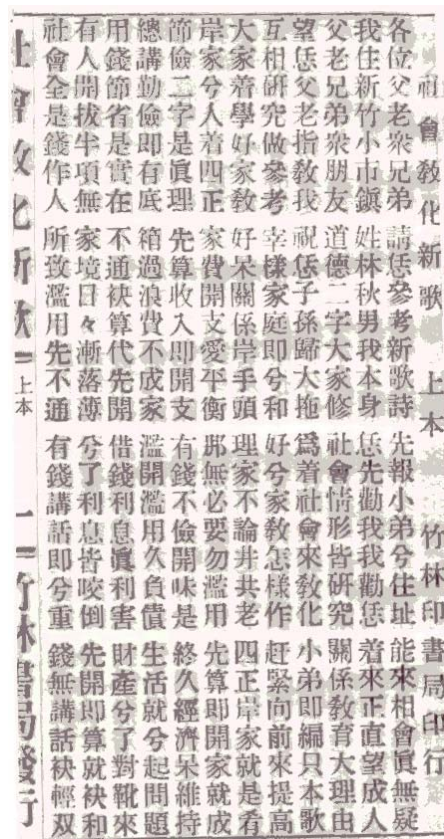 社會教化新歌 上本 竹林印書局印行
各位父老衆兄弟 請恁參考新歌詩 先報小弟兮住址 能來相會眞無疑
我住新竹小市鎭 姓林秋男我本身 恁先勸我我勸恁 着來正直望成人
父老兄弟衆朋友 道德二字大家修 社會情形皆研究 關係教育大理由
望恁父老指教我 祝恁子孫歸大拖 爲着社會來教化 小弟即編只本歌
互相硏究做參考 宰樣家庭即兮和 好兮家教怎樣作 赶緊向前來提高
大家着學好家教 好呆關係岸手頭 理家不論井共老 四正岸家就是看
岸家兮人着四正 家費開支愛平衡 那無必要勿濫用 先算即開家就成
節儉二字是眞理 先算收入即開支 有錢不儉開味是 終久經濟呆維持
總講勤儉即有底 箱過浪費不成家 濫開濫用久負債 生活就兮起問題
用錢節省是實在 不通袂算代先開 借錢利息眞利害 財產兮了對靴來
有人開拔半項無 家境日々漸落薄 兮了利息皆咬倒 先開即算就袂和
社會全是錢作人 所致濫用先不通 有錢講話即兮重 錢無講話袂輕双
社會教化新歌 上本 一 竹林書局發行